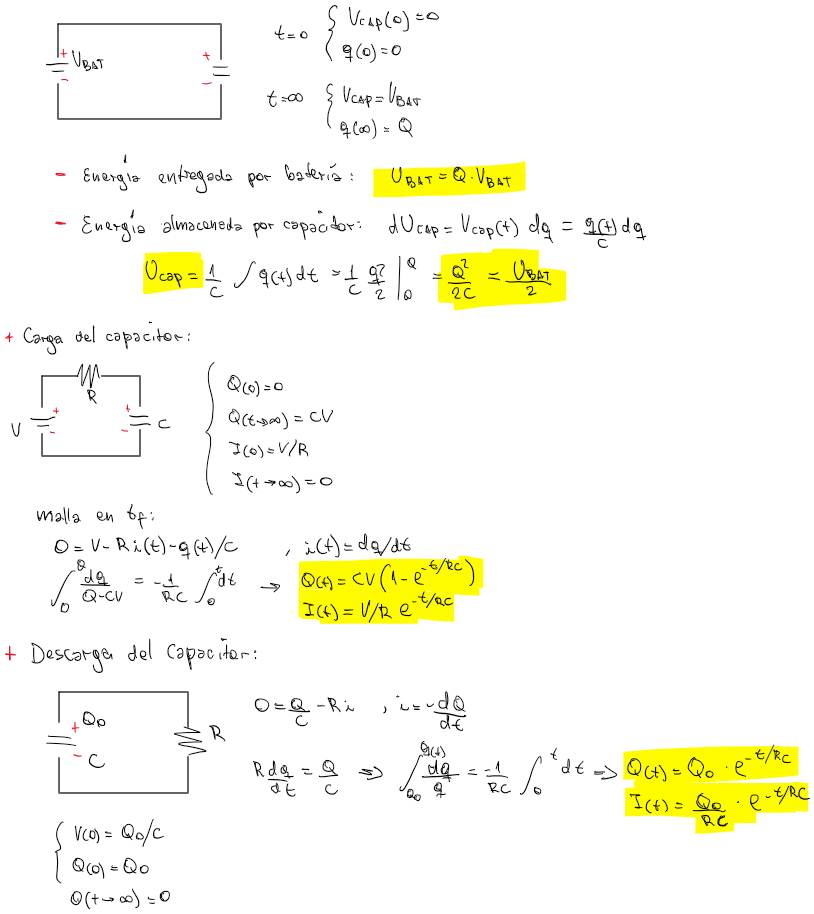 V_BAT
+ +
- -
t=0 { V_CAP(0)=0
q(0)=0
t=∞ { V_CAP=V_BAT
q(∞)=Q
- Energía entregada por batería: U_BAT=Q·V_BAT
- Energía almacenada por capacitor: dU_CAP=V_CAP(t) dq = q(t)/C dq
U_CAP = 1/C ∫ q(t) dt = 1/C q²/2 |_0^Q = Q²/2C = U_BAT/2
+ Carga del capacitor:
R
V + - + - C
Q(0)=0
Q(t→∞)=CV
I(0)=V/R
I(t→∞)=0
malla en t_f:
0=V-Ri(t)-q(t)/C , i(t)=dq/dt
∫_0^Q dq/(Q-CV) = -1/RC ∫_0^t dt → Q(t)=CV(1-e^{-t/RC})
I(t)=V/R e^{-t/RC}
+ Descarga del Capacitor:
+ Q0
- C
R
0=Q/C-Ri , i=-dQ/dt
R dq/dt = Q/C => ∫_{Q0}^{Q(t)} dq/q = -1/RC ∫_0^t dt => Q(t)=Q0·e^{-t/RC}
I(t)=Q0/RC·e^{-t/RC}
V(0)=Q0/C
Q(0)=Q0
Q(t→∞)=0